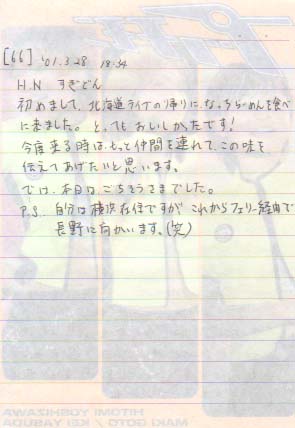 [66] '01.3.28 18:54
H.N すぎどん
初めまして、北海道ライブの帰りに、なっちらーめんを食べ
に来ました。とってもおいしかったです!
今度来る時は、もっと仲間を連れて、この味を
伝えてあげたいと思います。
では、本日は、ごちそうさまでした。
P.S. 自分は横浜在住ですが、これからフェリー経由で
長野に向かいます。(笑)
HITOMI YOSHIZAWA
MAKI GOTO / KEI YASUDA